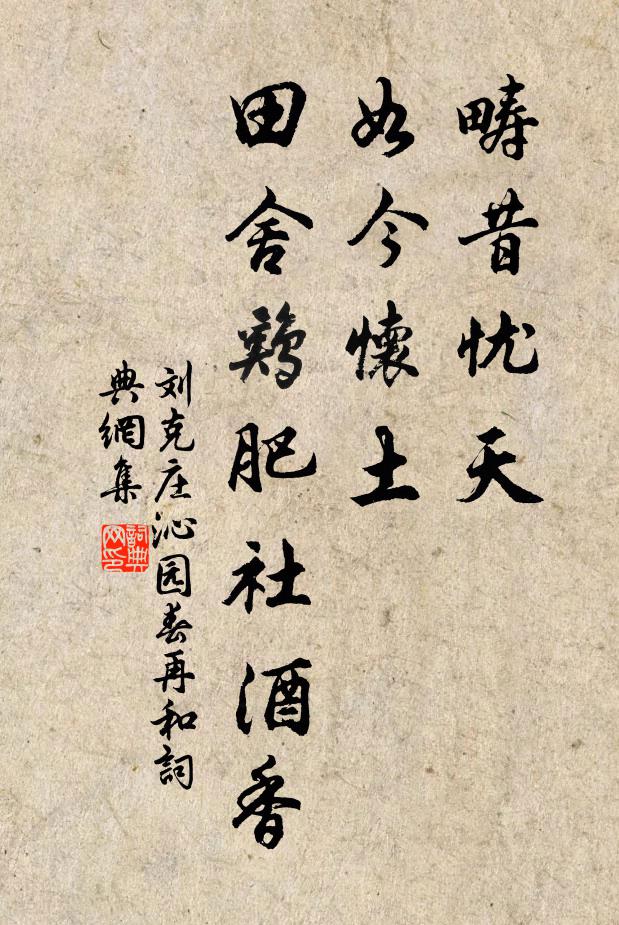 畴昔忧天
如今懷土
田舍鷄肥社酒香
刘克庄沁园春再和詞
典網集
詞典网印